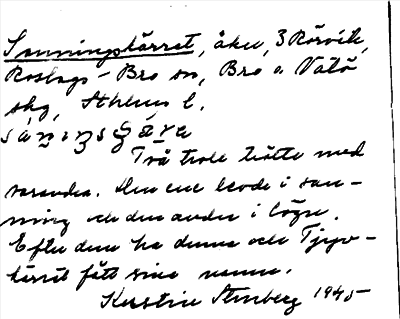 Sanningskärret, åker, 3 Rörvik,
Roslags-Bro sn, Bro o. Vätö
skg, Sthlms l.
Två troll trätte med
varandra. Den ene levde i san-
ning och den andre i lögn.
Efter dem ha denna och Tjuv-
kärret fått sina namn.
Kerstin Stenberg 1945